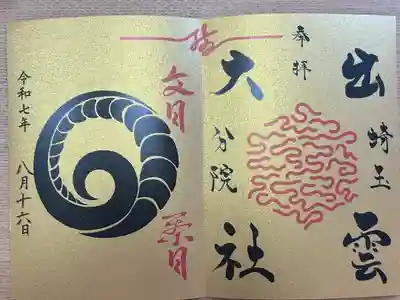 奉拝
出雲
埼玉
大社
分院
結
文月
葉月
令和七年
八月十六日